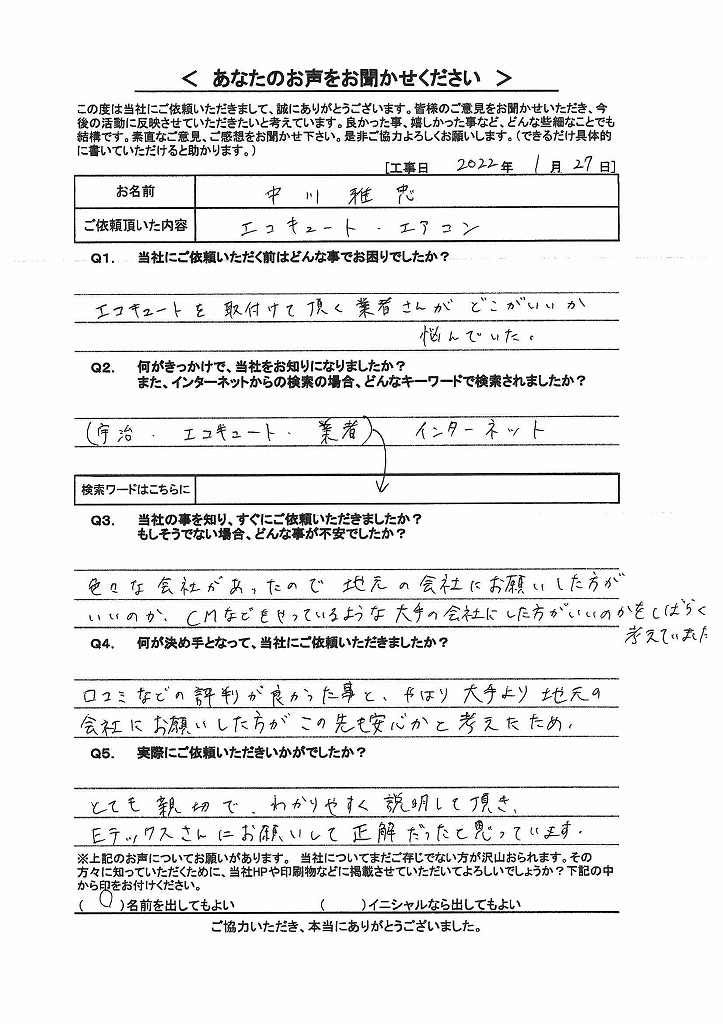 < あなたのお声をお聞かせください >
この度は当社にご依頼いただきまして、誠にありがとうございます。皆様のご意見をお聞かせいただき、今
後の活動に反映させていただきたいと考えています。良かった事、嬉しかった事など、どんな些細なことでも
結構です。素直なご意見、ご感想をお聞かせ下さい。是非ご協力よろしくお願いします。(できるだけ具体的
に書いていただけると助かります。)
[工事日 2022年 1月 27日]
お名前 中川 雅忠
ご依頼頂いた内容 エコキュート・エアコン
Q1. 当社にご依頼いただく前はどんな事でお困りでしたか?
エコキュートを取付けて頂く業者さんがどこがいいか
悩んでいた。
Q2. 何がきっかけで、当社をお知りになりましたか?
また、インターネットからの検索の場合、どんなキーワードで検索されましたか?
(宇治・エコキュート・業者) インターネット
検索ワードはこちらに
Q3. 当社の事を知り、すぐにご依頼いただきましたか?
もしそうでない場合、どんな事が不安でしたか?
色々な会社があったので地元の会社にお願いした方が
いいのか、CMなどをやっているような大手の会社にした方がいいのかをしばらく
考えていました
Q4. 何が決め手となって、当社にご依頼いただきましたか?
口コミなどの評判が良かった事と、やはり大手より地元の
会社にお願いした方がこの先も安心かと考えたため。
Q5. 実際にご依頼いただきいかがでしたか?
とても親切で、わかりやすく説明して頂き、
Eテックスさんにお願いして正解だったと思っています。
※上記のお声についてお願いがあります。 当社についてまだご存じでない方が沢山おられます。その
方々に知っていただくために、当社HPや印刷物などに掲載させていただいてよろしいでしょうか?下記の中
から印をお付けください。
(○)名前を出してもよい ( )イニシャルなら出してもよい
ご協力いただき、本当にありがとうございました。